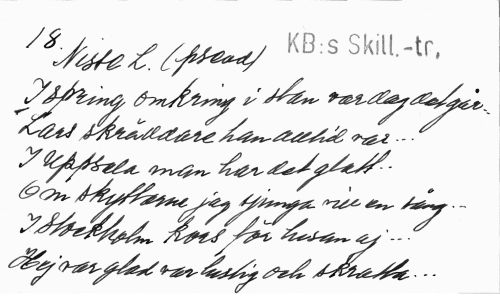 18.
KB:s Skill.-tr.
Nisse L. (pseud)
I spring omkring i stan var dag det går..
Lars skräddare han alltid var...
I Uppsala man har det glatt..
Om skyttarne jag sjunga vill en sång...
I Stockholm kors för husan aj...
Hej var glad var lustig och skratta...